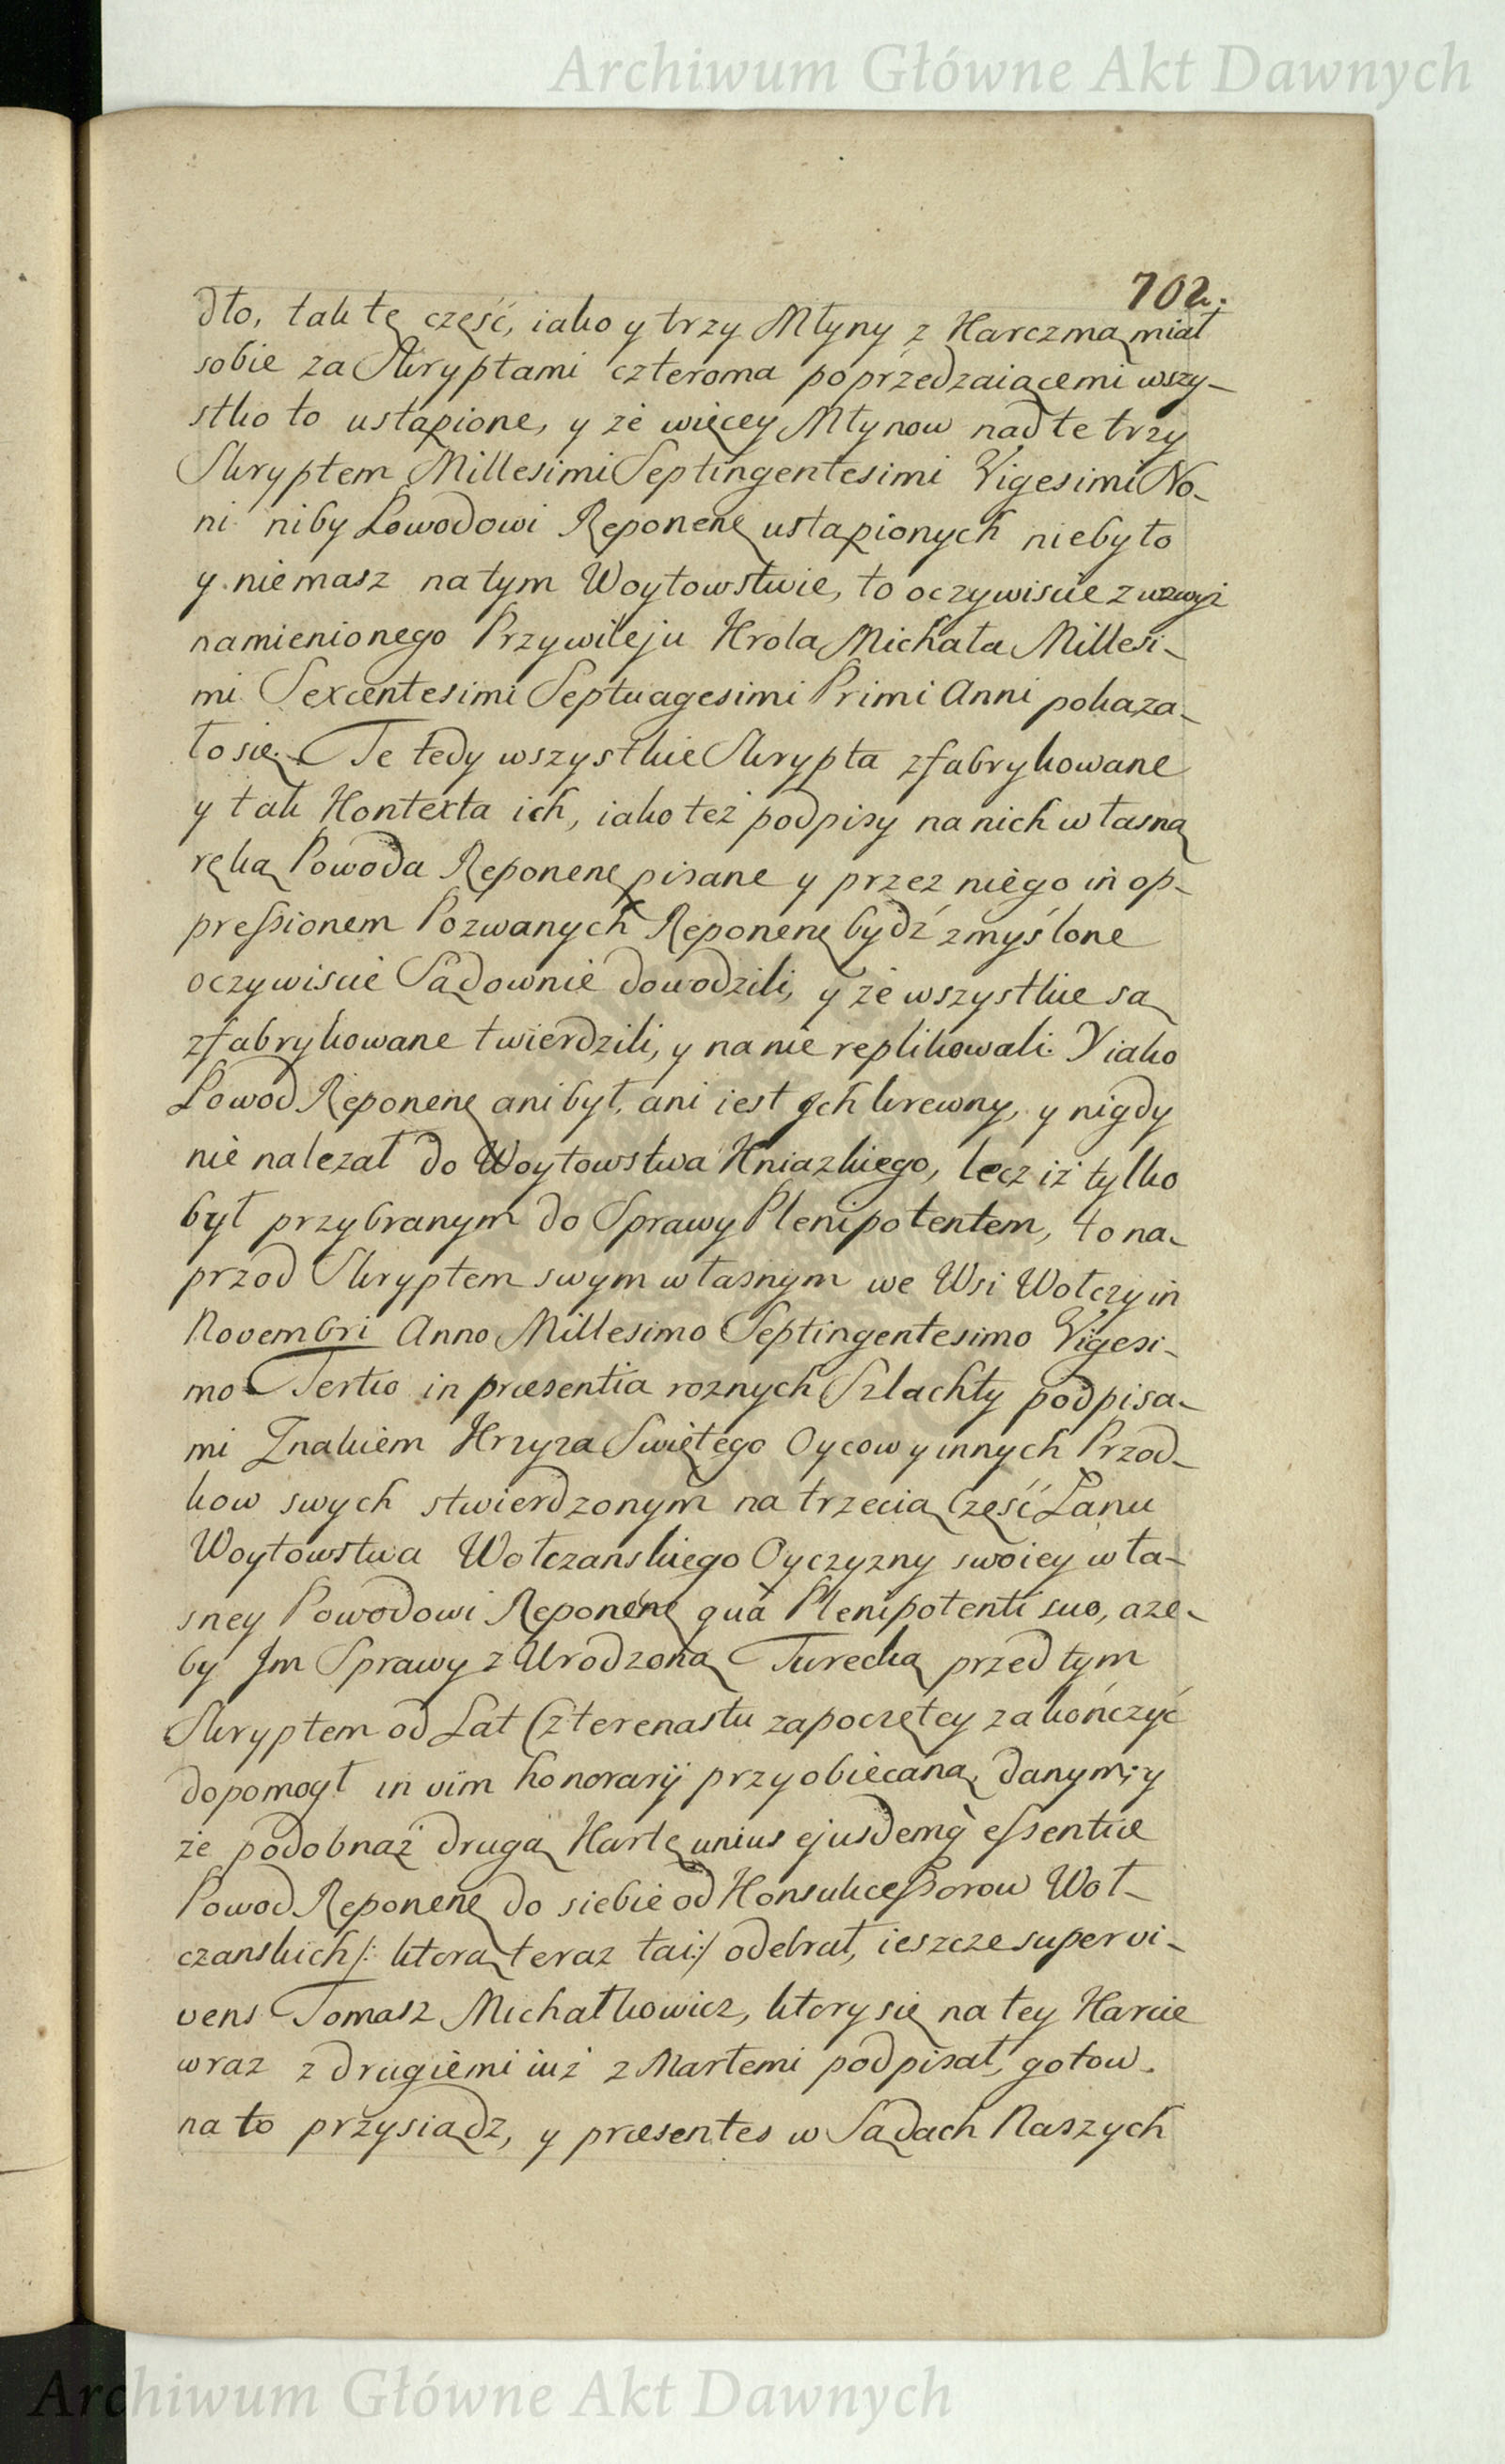 Archiwum Główne Akt Dawnych
702.
dło, tak tę część, iako y trzy Młyny z Karczmą miał
sobie za Skryptami czteroma poprzedzaiącemi wszy-
stko to ustąpione, y że więcey Młynow nad te trzy
Skryptem Millesimi Septingentesimi Vigesimi No-
ni niby Powodowi Reponenę ustąpionych niebyło
y niemasz na tym Woytowstwie, to oczywiście z wzwyż
namienionego Przywileju Krola Michała Millesi-
mi Sexcentesimi Septuagesimi Primi Anni pokaza-
ło się. Te tedy wszystkie Skrypta zfabrykowane
y tak Kontexta ich, iako też podpisy na nich własną
ręką Powoda Reponenę pisane y przez niego in op-
pressionem Pozwanych Reponenę bydź zmyślone
oczywiście Sądownie dowodzili, y że wszystkie są
zfabrykowane twierdzili, y na nie replikowali. Y iako
Powod Reponenę ani był, ani iest Ich krewny, y nigdy
nie nalezał do Woytowstwa Kniazkiego, lecz iż tylko
był przybranym do Sprawy Plenipotentem, to na-
przod Skryptem swym własnym we Wsi Wołczy in
Novembri Anno Millesimo Septingentesimo Vigesi-
mo Tertio in præsentia roznych Szlachty podpisa-
mi Znakiem Krzyza Swiętego Oycow y innych Przod-
kow swych stwierdzonym na trzecią Część Łanu
Woytowstwa Wołczanskiego Oyczyzny swoiey wła-
sney Powodowi Reponenę quà Plenipotenti suo, aze-
by Im Sprawy z Urodzoną Turecką przed tym
Skryptem od Lat Czterenastu zapoczętey zakończyć
dopomogł in vim honorarij przyobiecaną, danym; y
że podobnaż drugą Kartę unius ejusdemq̀ essentiæ
Powod Reponenę do siebie od Konsukcessorow Woł-
czanskich /: ktorą teraz tai :/ odebrał, ieszcze supervi-
vens Tomasz Michałkowicz, ktory się na tey Karcie
wraz z drugiemi iuż zMarłemi podpisał, gotow
na to przysiądz, y præsentes w Sądach Naszych
Archiwum Główne Akt Dawnych